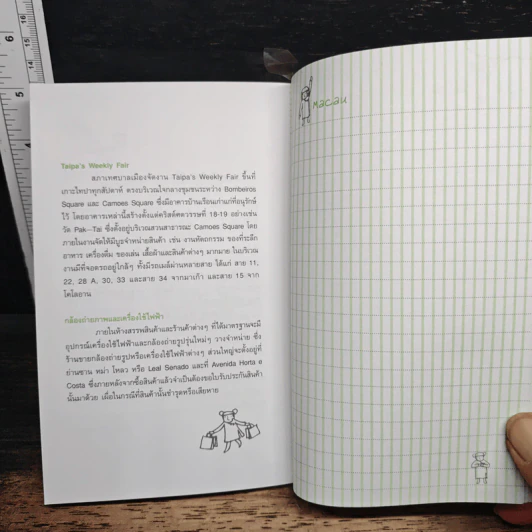 Taipa's Weekly Fair
สภาเทศบาลเมืองจัดงาน Taipa's Weekly Fair ขึ้นที่
เกาะไทปาทุกสัปดาห์ ตรงบริเวณใจกลางชุมชนระหว่าง Bombeiros
Square และ Camoes Square ซึ่งมีอาคารบ้านเรือนเก่าแก่ที่อนุรักษ์
ไว้ โดยอาคารเหล่านี้สร้างตั้งแต่คริสต์ศตวรรษที่ 18-19 อย่างเช่น
วัด Pak-Tai ซึ่งตั้งอยู่บริเวณสวนสาธารณะ Camoes Square โดย
ภายในงานจัดให้มีบูธจำหน่ายสินค้า เช่น งานหัตถกรรม ของที่ระลึก
อาหาร เครื่องดื่ม ของเล่น เสื้อผ้าและสินค้าต่างๆ มากมาย ในบริเวณ
งานมีที่จอดรถอยู่ใกล้ๆ ทั้งมีรถเมล์ผ่านหลายสาย ได้แก่ สาย 11,
22, 28 A, 30, 33 และสาย 34 จากมาเก๊า และสาย 15 จาก
โคโลอาน
กล้องถ่ายภาพและเครื่องใช้ไฟฟ้า
ภายในห้างสรรพสินค้าและร้านค้าต่างๆ ที่ได้มาตรฐานจะมี
อุปกรณ์เครื่องใช้ไฟฟ้าและกล้องถ่ายรูปรุ่นใหม่ๆ วางจำหน่าย ซึ่ง
ร้านขายกล้องถ่ายรูปหรือเครื่องใช้ไฟฟ้าต่างๆ ส่วนใหญ่จะตั้งอยู่ที่
ย่านซาน หม่า โหลว หรือ Leal Senado และที่ Avenida Horta e
Costa ซึ่งภายหลังจากซื้อสินค้าแล้วจำเป็นต้องขอใบรับประกันสินค้า
นั้นมาด้วย เผื่อในกรณีที่สินค้านั้นชำรุดหรือเสียหาย
Macau
6
5
16
15
14